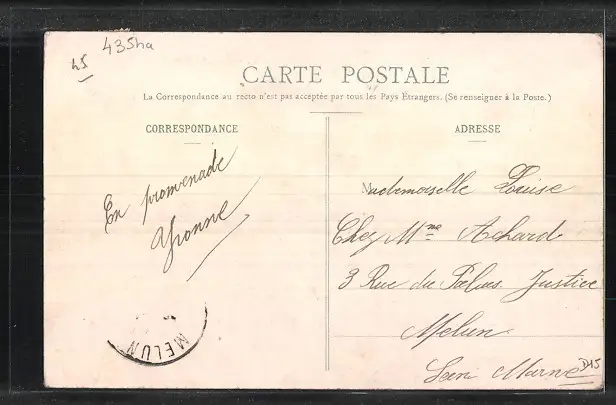 45
435ha
CARTE POSTALE
La Correspondance au recto n'est pas acceptée par tous les Pays Étrangers. (Se renseigner à la Poste.)
CORRESPONDANCE
En promenade
Yvonne
MELUN
ADRESSE
Mademoiselle Louise
Chez Mme Achard
3 Rue du Palais Justice
Melun
Seine Marne
D15